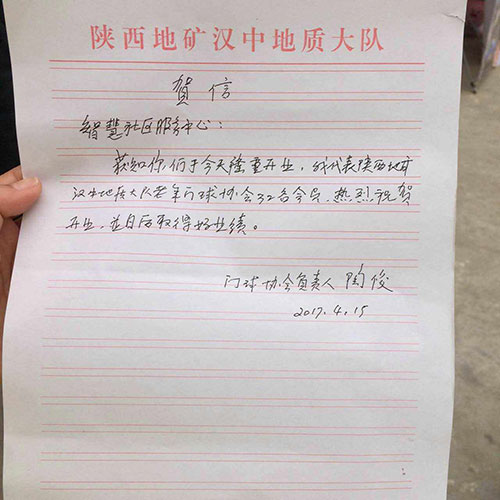 陕西地矿汉中地质大队
贺信
智慧社区服务中心:
获知你们于今天隆重开业,我代表陕西地矿
汉中地质大队老年门球协会32名会员,热烈祝贺
开业,并日后取得好业绩。
门球协会负责人 陶俊
2017.4.15